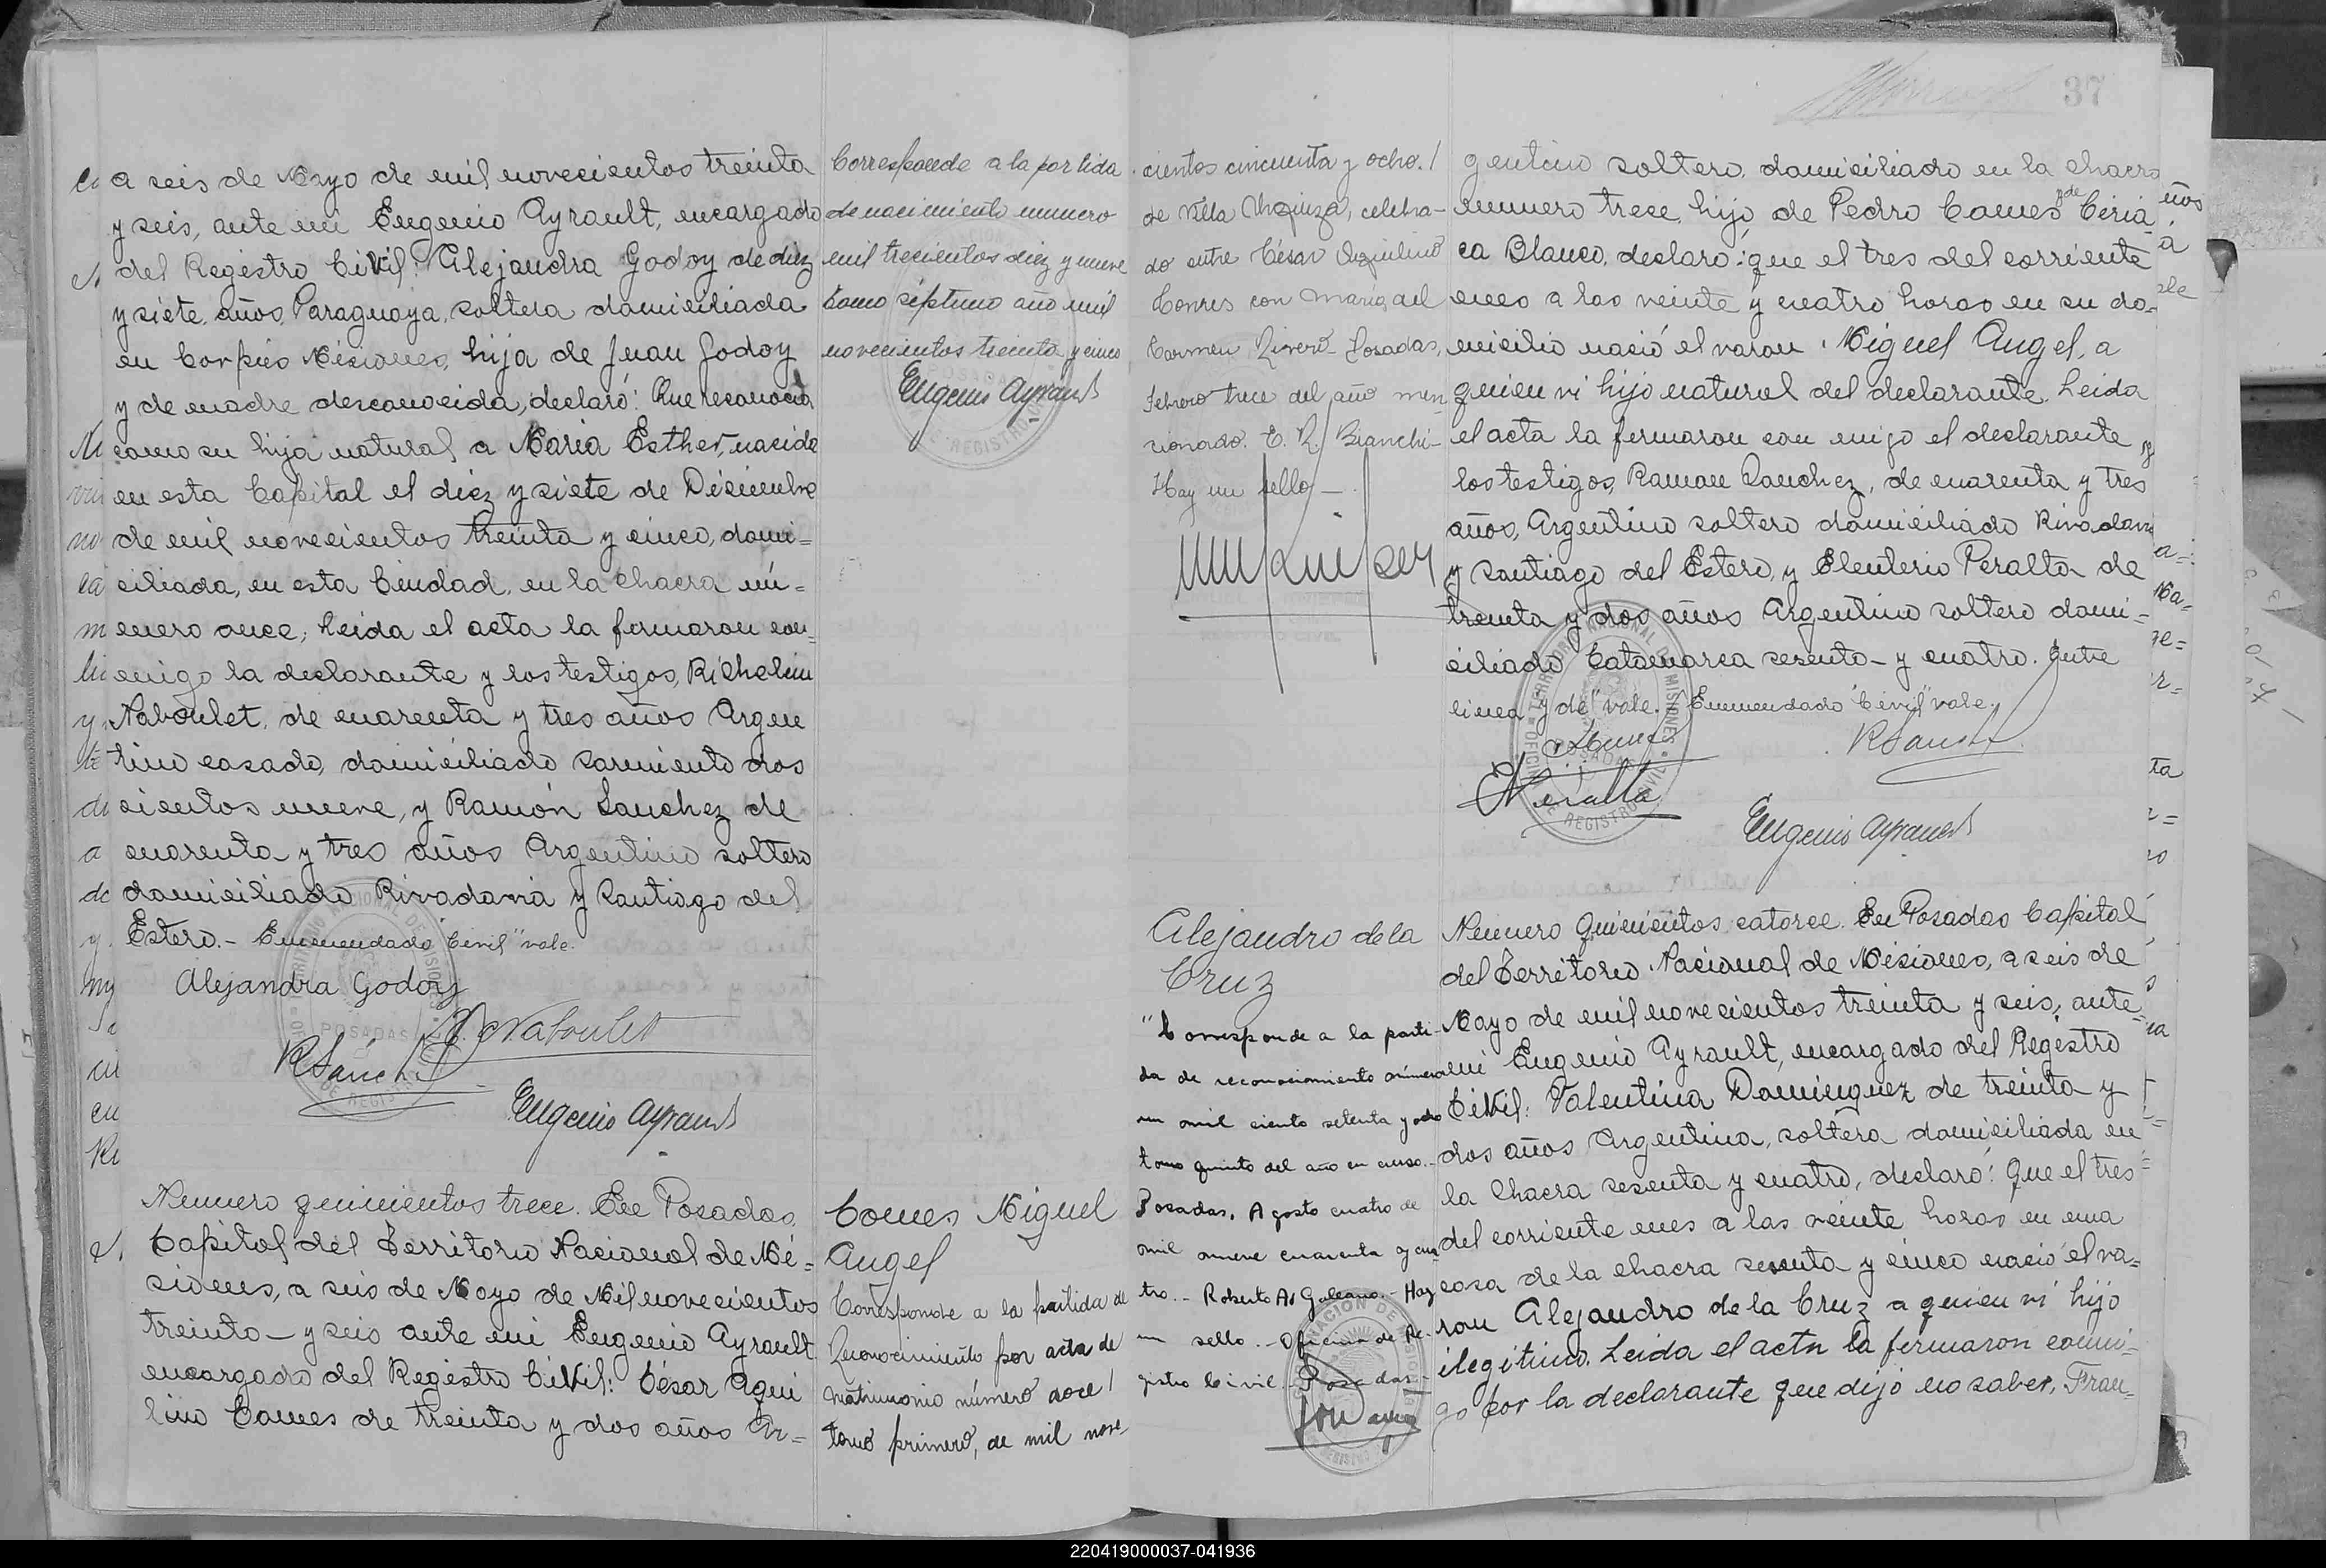 a seis de Mayo de mil novecientos treinta
y seis, ante mi Eugenio Ayrault, encargado
del Registro Civil: Alejandra Godoy de diez
y siete años, Paraguaya, soltera domiciliada
en Corpus Misiones, hija de Juan Godoy
y de madre desconocida, declaró: Que reconocia
como su hija natural a Maria Esther, nacida
en esta Capital el diez y siete de Diciembre
de mil novecientos treinta y cinco, domi=
ciliada, en esta Ciudad, en la chacra nú=
mero once; Leida el acta la firmaron con=
migo la declarante y los testigos, Richelieu
Naboulet, de cuarenta y tres años Argen
tino casado, domiciliado Sarmiento dos
cientos nueve, y Ramón Sanchez de
cuarenta y tres años Argentino soltero
domiciliado Rivadavia y Santiago del
Estero.- Enmendado "Civil" vale.
Alejandra Godoy
R. Naboulet
R Sánchez
Eugenio Ayrault
Corresponde a la partida
de nacimiento numero
mil trecientos diez y nueve
tomo séptimo año mil
novecientos treinta y cinco
Eugenio Ayrault
Numero quinientos trece. En Posadas,
Capital del Territorio Nacional de Mi=
siones, a seis de Mayo de Mil novecientos
treinta y seis ante mi Eugenio Ayrault
encargado del Registro Civil: César Aqui
lino Comes de treinta y dos años Ar=
Comes Miguel
Angel
Corresponde a la partida de
Reconocimiento por acta de
matrimonio número doce/
tomo primero, de mil nove
cientos cincuenta y ocho./
de Villa Urquiza, celebra-
do entre César Aquilino
Comes con Maria del
Carmen Rivero - Posadas,
febrero trece del año men
cionado. E. R. Bianchi-
Hay un sello -
37
gentino soltero, domiciliado en la chacra
numero trece, hijo de Pedro Comes y de Ciria
ca Blanco, declaró: que el tres del corriente
mes a las veinte y cuatro horas en su do=
micilio nació el varon Miguel Angel, a
quien vi hijo natural del declarante. Leida
el acta la firmaron con migo el declarante y
los testigos, Ramon Sanchez, de cuarenta y tres
años, Argentino soltero domiciliado Rivadavia
y Santiago del Estero, y Eleuterio Peralta de
treinta y dos años Argentino soltero domi=
ciliado Catamarca sesenta y cuatro. Entre
linea "y de" vale. Enmendado "Civil" vale.
R Sanchez
Peralta
Eugenio Ayrault
Alejandro de la
Cruz
"Corresponde a la parti-
da de reconocimiento número
un mil ciento setenta y ocho
tomo quinto del año en curso.-
Posadas, Agosto cuatro de
mil nueve cuarenta y cua
tro.- Roberto A. Galeano.- Hay
un sello.- Oficina de Re-
gistro Civil - Posadas-
Numero quinientos catorce. En Posadas Capital
del Territorio Nacional de Misiones, a seis de
Mayo de mil novecientos treinta y seis, ante
mi Eugenio Ayrault, encargado del Registro
Civil: Valentina Dominguez de treinta y
dos años Argentina, soltera domiciliada en
la Chacra sesenta y cuatro, declaró: Que el tres
del corriente mes a las veinte horas en una
casa de la chacra sesenta y cinco nació el va=
ron Alejandro de la Cruz a quien vi hijo
ilegitimo. Leida el acta la firmaron conmi=
go por la declarante que dijo no saber, Fran=
220419000037-041936